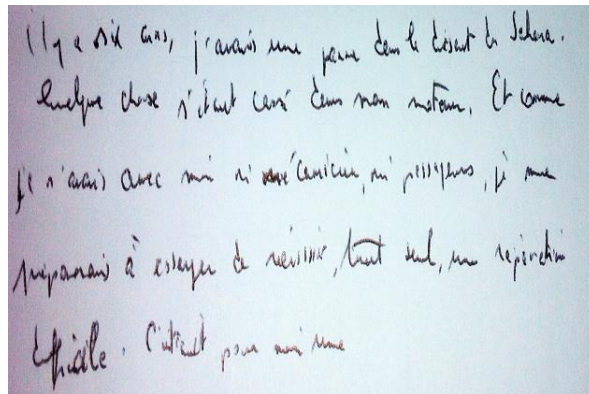 Il y a six ans, j'avais une panne dans le désert du Sahara.
Quelque chose s'était cassé dans mon moteur. Et comme
je n'avais avec moi ni mécanicien, ni passagers, je me
préparais à essayer de réussir, tout seul, une réparation
difficile. C'était pour moi une